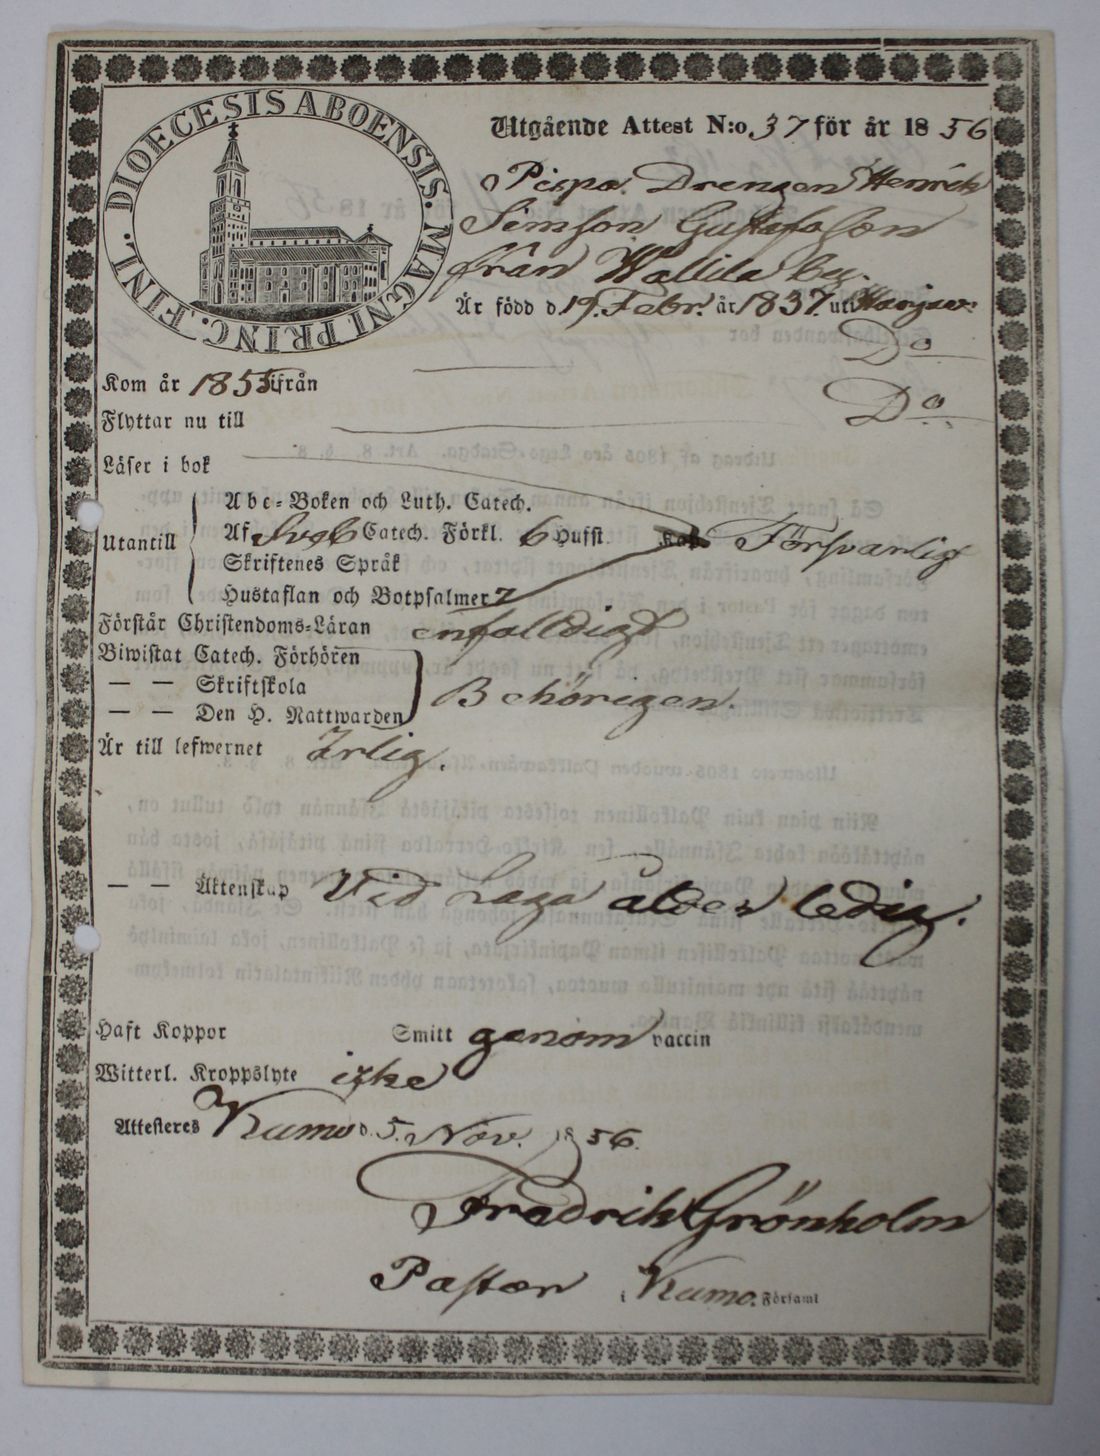 DIOECESIS ABOENSIS. MAGNI PRINC. FINL.
Utgående Attest N:o 37 för år 1856
Pispa. Drengen Henrik
Simson Gustafsson
från Wallila by.
Är född d. 19. Febr. år 1837. uti Harjaw:
Kom år 1855 ifrån Do
Flyttar nu till Do
Läser i bok
Abc-Boken och Luth. Catech.
Utantill Af Sveb Catech. Förkl. 6 Hufst. Försvarligt
Skriftenes Språk
Hustaflan och Botpsalmer 7
Förstår Christendoms-Läran enfalldigt
Biwistat Catech. Förhören
— — Skriftskola Behörigen.
— — Den H. Nattwarden
Är till lefwernet Ärlig.
— — Äktenskap Vid Laga ålder ledig.
Haft Koppor Smitt genom vaccin
Witterl. Kroppslyte icke
Attesteres Kumo d. 5. Nov. 1856.
Fredrik Grönholm
Pastor i Kumo. Församl